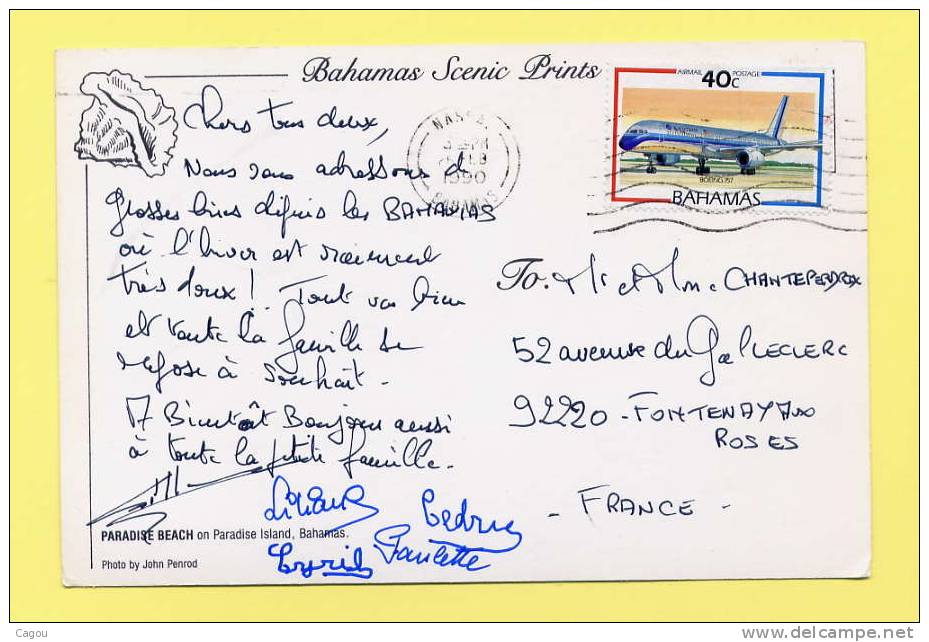 Bahamas Scenic Prints
AIRMAIL POSTAGE
40c
BOEING 757
BAHAMAS
NASSAU
1990
BAHAMAS
Chers tous deux,
Nous vous adressons de
grosses bises depuis les BAHAMAS
où l'hiver est vraiment
très doux! Tout va bien
et toute la famille se
repose à souhait.
A Bientôt Bonjour aussi
à toute la petite famille.
Liliane Cedric
Cyril Paulette
To: Mr et Mme CHANTEPERDRIX
52 avenue du Gal LECLERC
92220 - FONTENAY Aux
ROSES
- FRANCE -
PARADISE BEACH on Paradise Island, Bahamas.
Photo by John Penrod
Cagou
www.delcampe.net